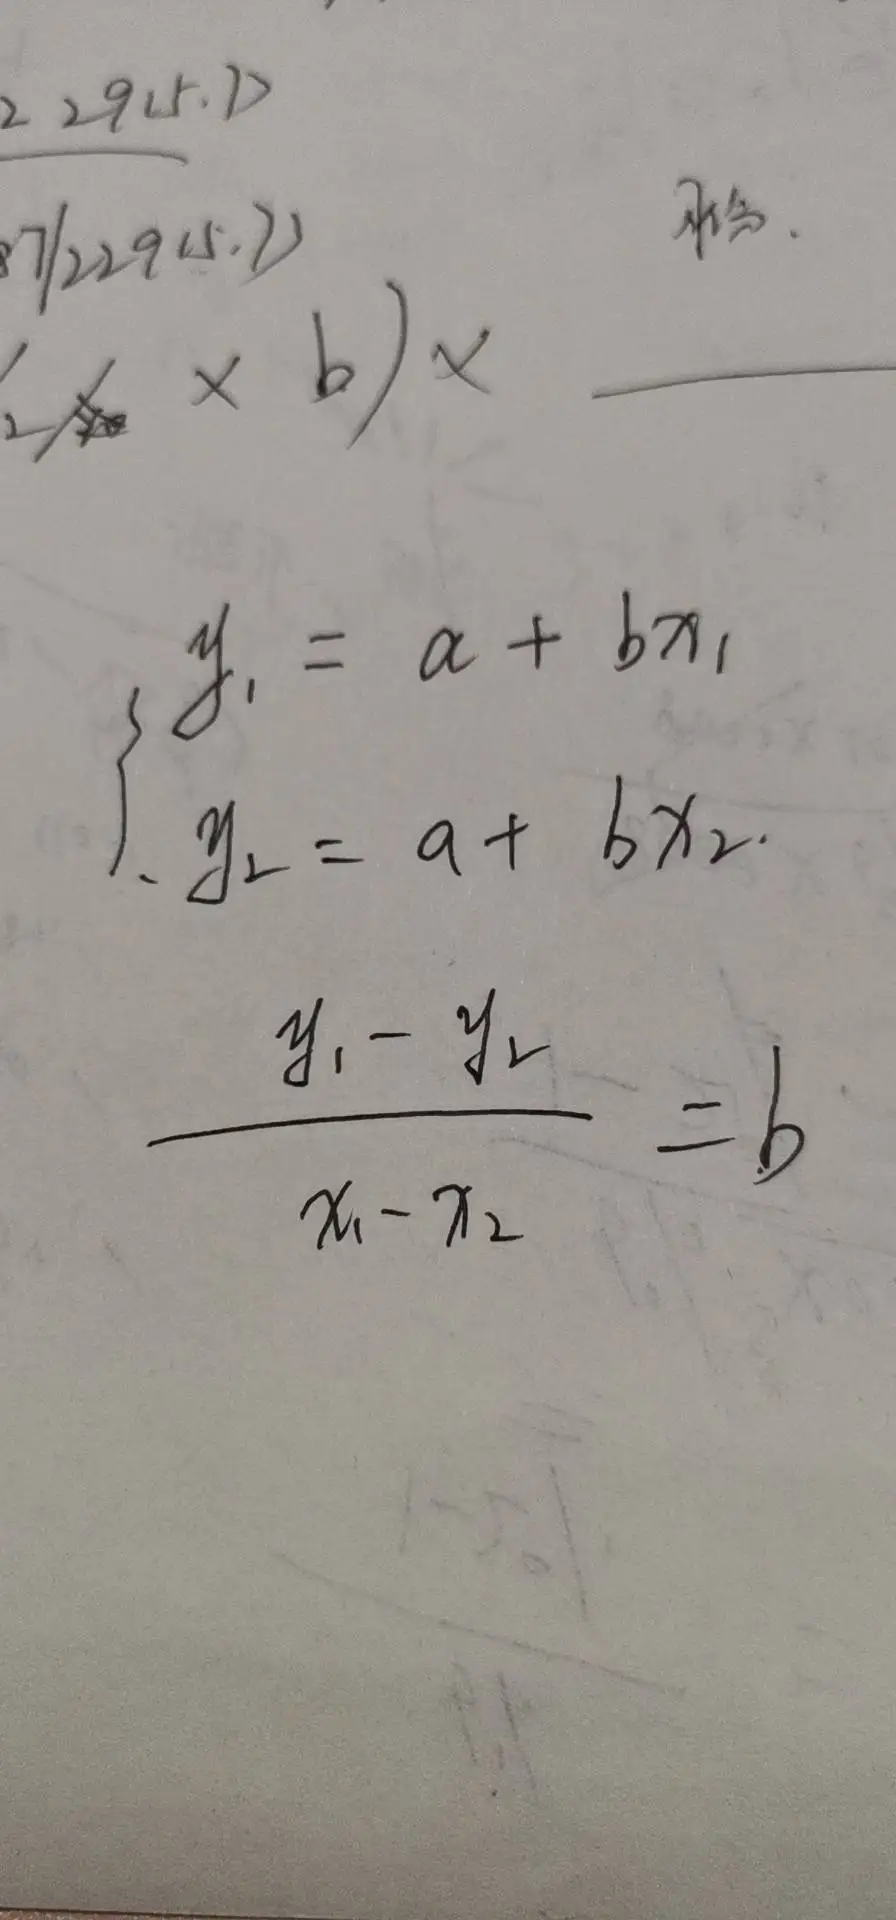 229(5.7)
87/229(5.7)
× b) ×
y₁ = a + bx₁
y₂ = a + bx₂.
y₁ - y₂
x₁ - x₂
= b